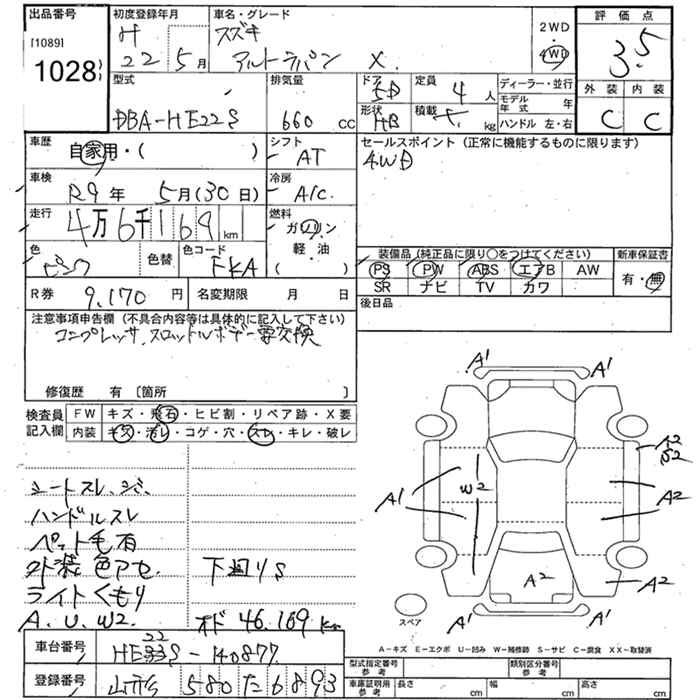 出品番号
[1089]
1028
初度登録年月
H
22 5月
車名・グレード
スズキ
アルトラパン X
2WD
・
4WD
評価点
3.5
外装 内装
C C
型式
DBA-HE22S
排気量
660 cc
ドア
5D
定員
4 人
形状
HB
積載
kg
ディーラー・並行
モデル年式 年
ハンドル 左・右
車歴
自家用・( )
シフト
AT
車検
R9年 5月(30日)
冷房
A/C
走行
4万6千169 km
燃料
ガソリン
・
軽・油
( )
色
ピンク
色替
色コード
FKA
セールスポイント (正常に機能するものに限ります)
4WD
装備品 (純正品に限り○をつけてください)
PS PW ABS エアB AW
SR ナビ TV カワ
新車保証書
有・無
R券 9,170 円
名変期限 月 日
後日品
注意事項申告欄 (不具合内容等は具体的に記入して下さい)
コンプレッサ、スロットルボデー要交換
修復歴 有 [箇所 ]
検査員
記入欄
FW キズ・飛石・ヒビ割・リペア跡・X要
内装 キズ・汚レ・コゲ・穴・スレ・キレ・破レ
シートスレ、シミ、
ハンドルスレ
ペット毛有
外装色アセ
下廻りS
ライトくもり
A、U、W2
オド 46,169 km
A1 A1
A2
S2
A1
W2
A2
A2
A2
A1 A1
スペア
A-キズ E-エクボ U-凹み W-補修跡 S-サビ C-腐食 XX-取替済
車台番号
22
HE33S-140877
登録番号
山形 580 た 6893
型式指定番号
参考
類別区分番号
参考
車庫証明用
参考
長さ cm 幅 cm 高さ cm